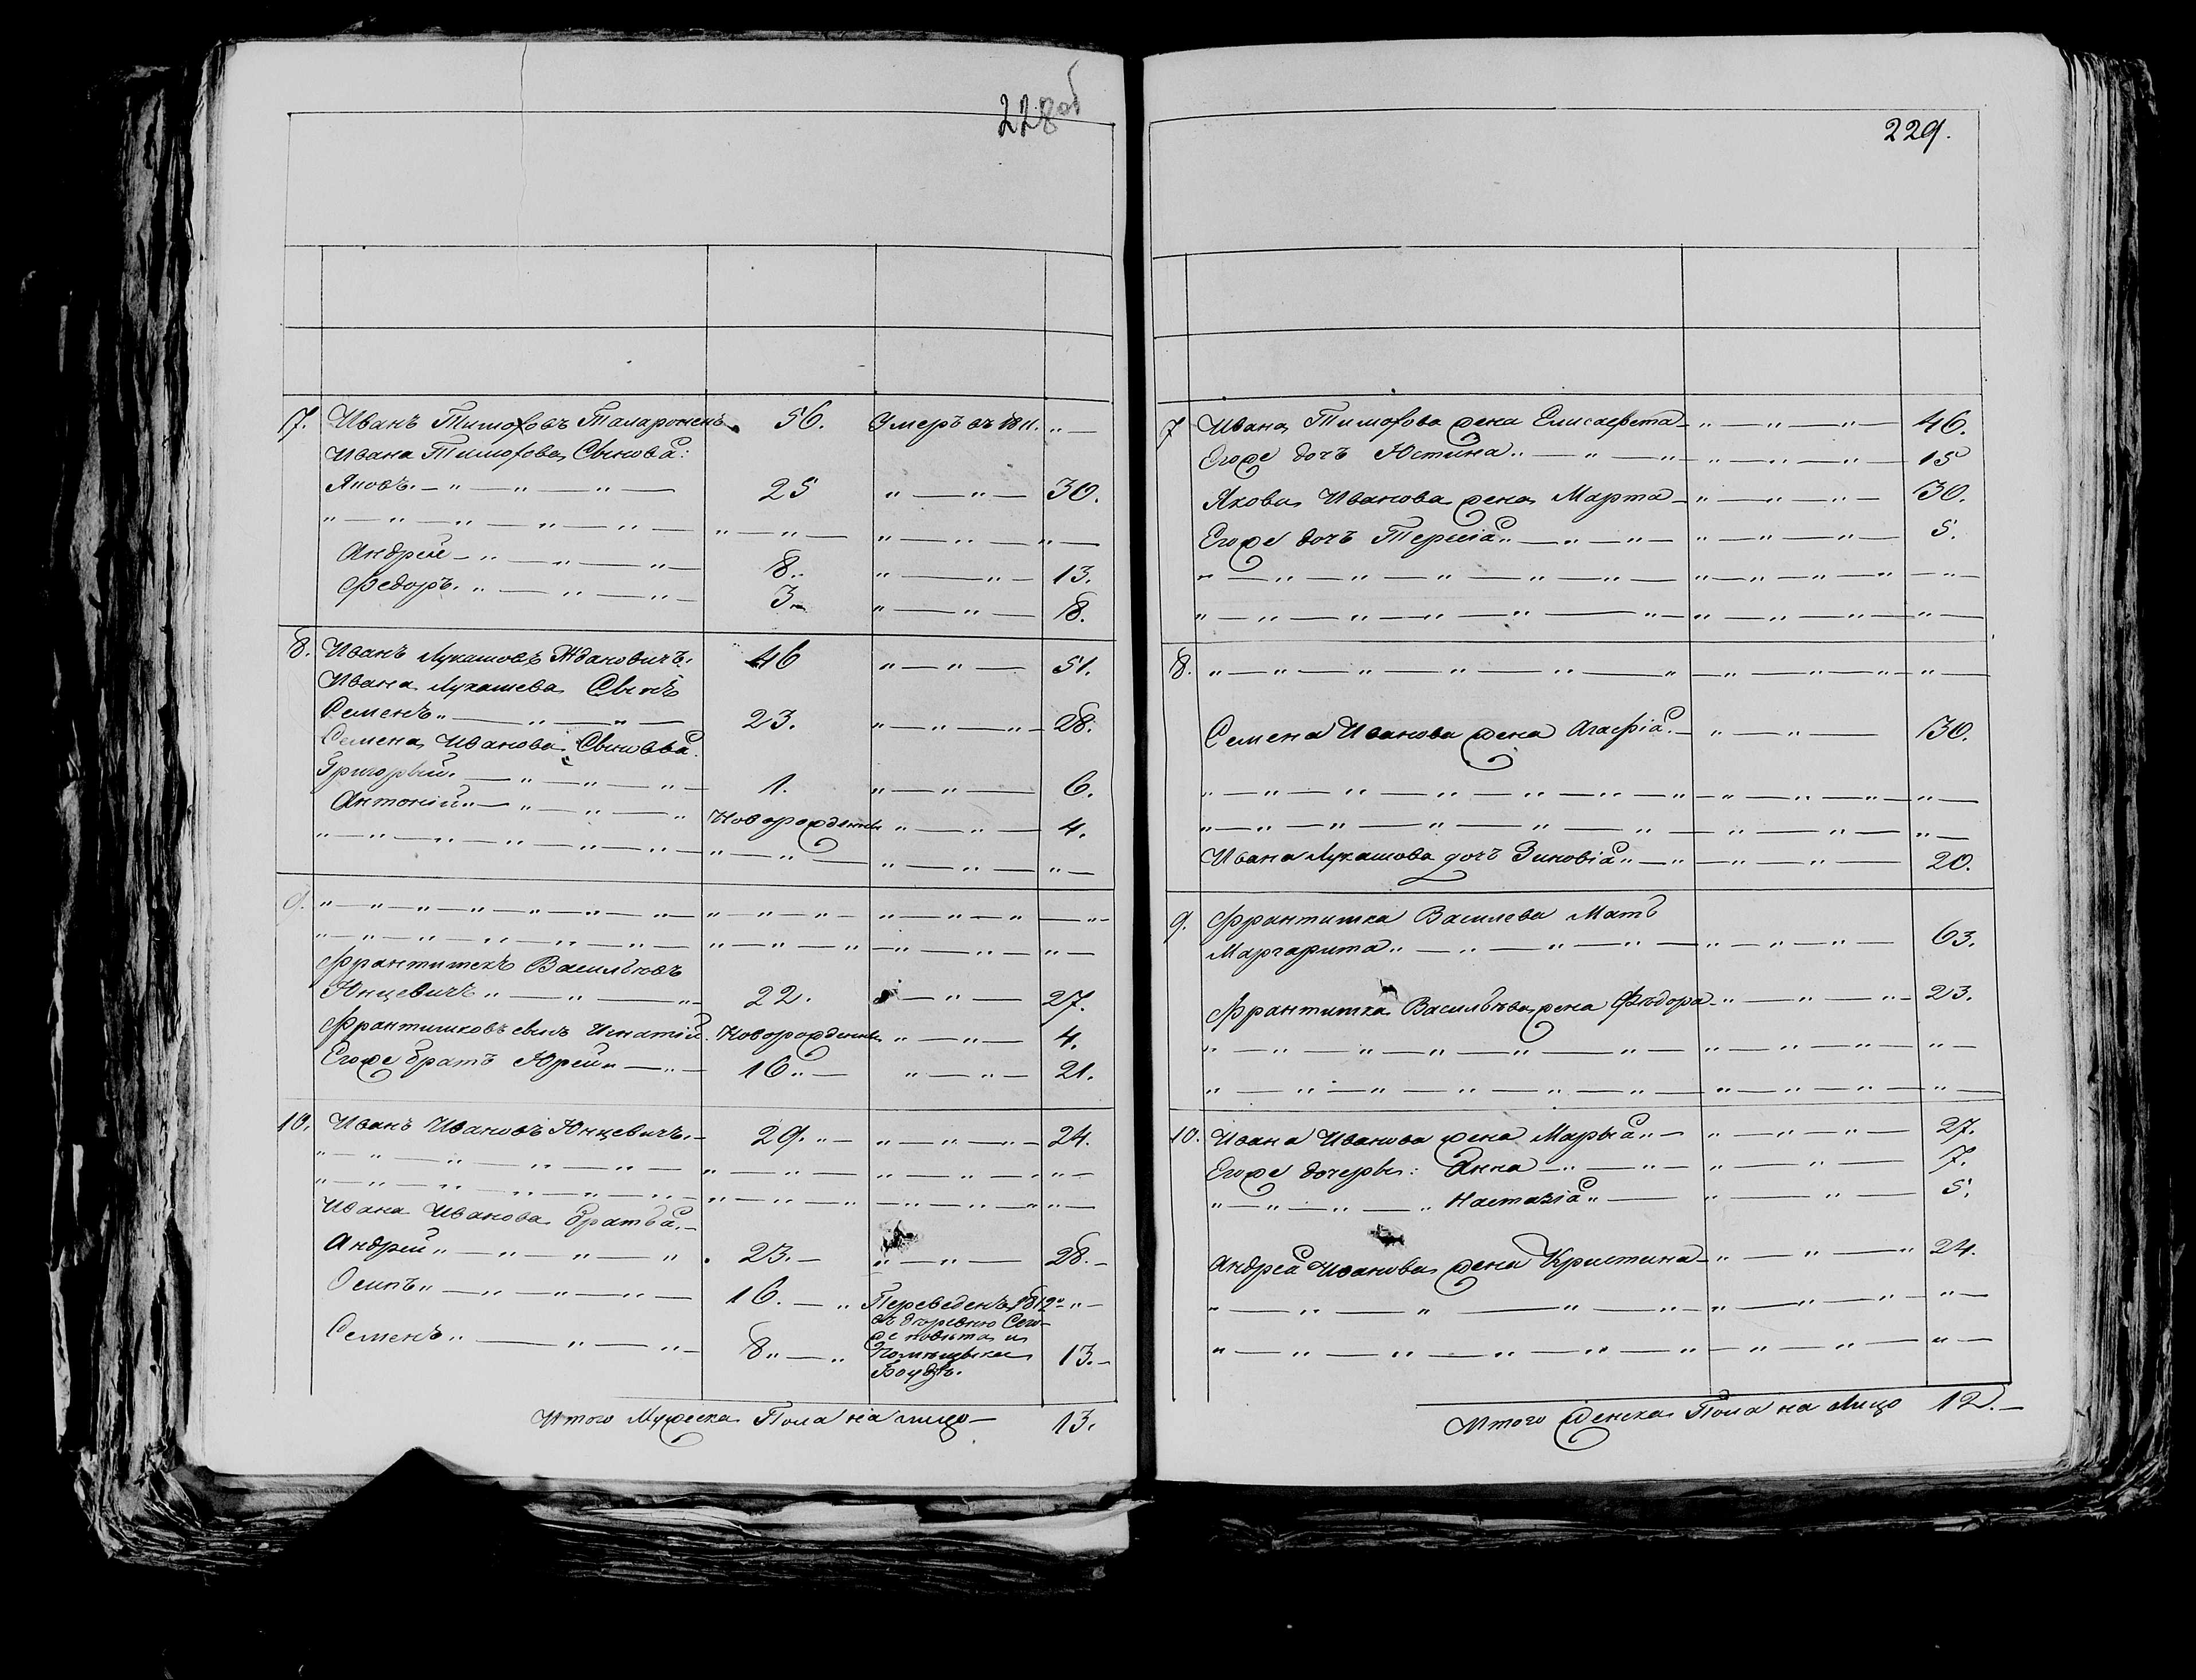 228об
7. Иванъ Тимофовъ Таларонекъ. 56. Умеръ въ 1811. "—
Ивана Тимофова Сынова:
Яковъ. 25 "—"— 30.
Андрей 8. "—"— 13.
Федоръ. 3. "—"— 8.
8. Иванъ Лукашовъ Ждановичъ. 46 "—"— 51.
Ивана Лукашева Сынъ
Семенъ 23. "—"— 28.
Семена Иванова Сыновья
Григорьий. 1. "—"— 6.
Антоній 4.
Новорожденны
Франтишекъ Васильювъ
Юнцевичъ 22. "— 27.
Франтишковъ сынъ Игнатій. Новорожденны "—"— 4.
Егоже братъ Юрей 16. "—"— 21.
10. Иванъ Ивановъ Юнцевичъ. 29. "—"— 24.
Ивана Иванова братья
Андрей 23. "—"— 28.
Осипъ 16. Переведенъ 1812 "—
въ деревню Сего-
же повѣта и
Семенъ 8. Помѣщыка 13.
Итого Мужеска Пола на лицо— 13.
229.
7 Ивана Тимофова жена Елисавета 46.
Егоже дочъ Юстина 15
Якова Иванова жена Марта 30.
Егоже дочъ Терысіа 5.
8.
Семена Иванова жена Агафіа. 30.
Ивана Лукашова дочъ Зиновіа 20.
9. Франтишка Василева Мать
Маргарита 63.
Франтишка Васильѣва жена Ѳѣдора 23.
10. Ивана Иванова жена Марыа 27.
Егоже дочеры: Анна 7.
Настазіа 5.
Андреа Иванова жена Кристина 24.
Итого Женска Пола на Лицо 12.—